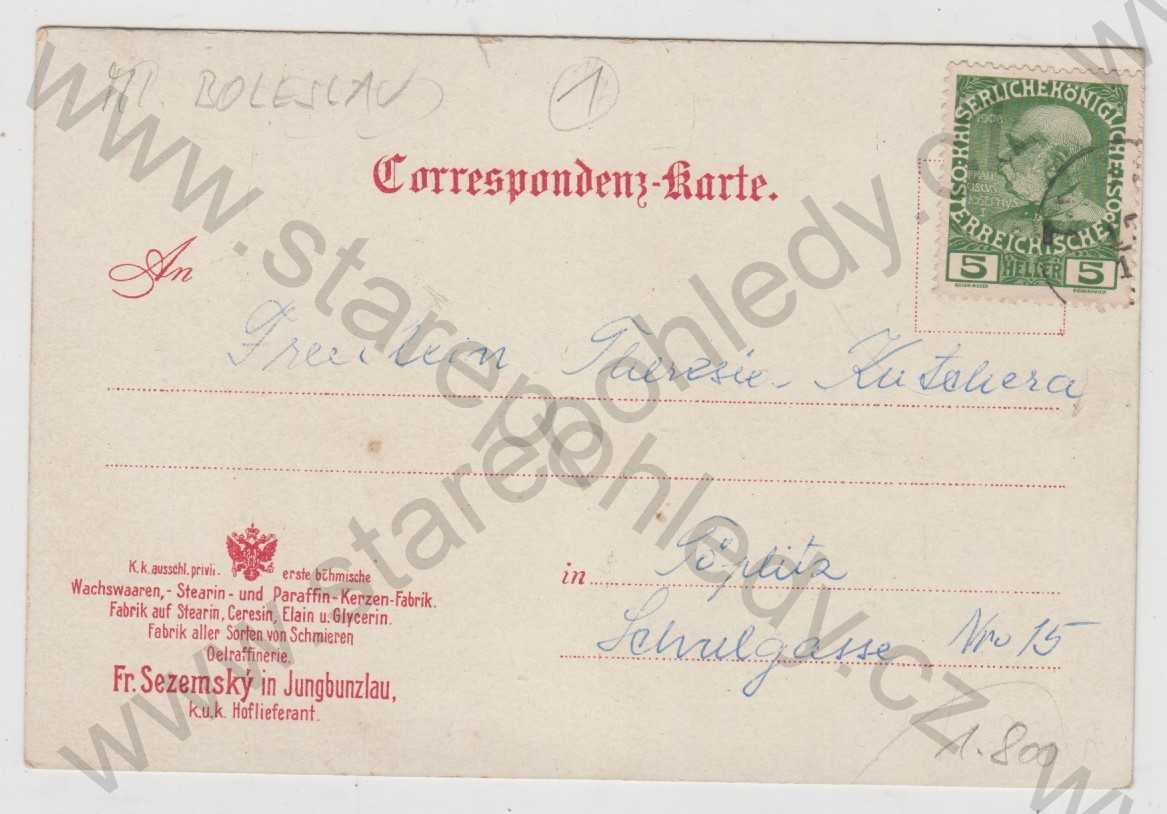 Ml. BOLESLAV
1
Correspondenz-Karte.
KAISERLICHE KÖNIGLICHE ÖSTERREICHISCHE POST
1908
FRANCISCUS JOSEPHUS I
5 HELLER 5
An
Freulein Theresie Kutschera
in Töplitz
Schulgasse Nro 15
K.k.ausschl.privil. erste böhmische
Wachswaaren,- Stearin- und Paraffin-Kerzen-Fabrik.
Fabrik auf Stearin, Ceresin, Elain u. Glycerin.
Fabrik aller Sorten von Schmieren
Oelraffinerie.
Fr. Sezemský in Jungbunzlau,
k.u.k. Hoflieferant.
1.800
www.starepohledy.cz
www.starepohledy.cz